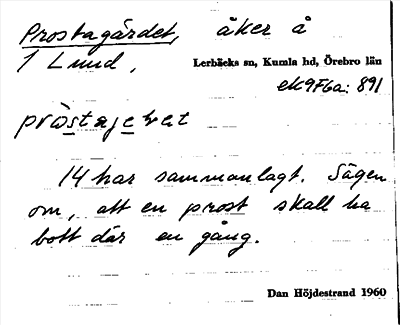 Prostagärdet, åker å
1 Lund,
Lerbäcks sn, Kumla hd, Örebro län
ek9F6a: 891
14 har sammanlagt. Sägen
om, att en prost skall ha
bott där en gång.
Dan Höjdestrand 1960